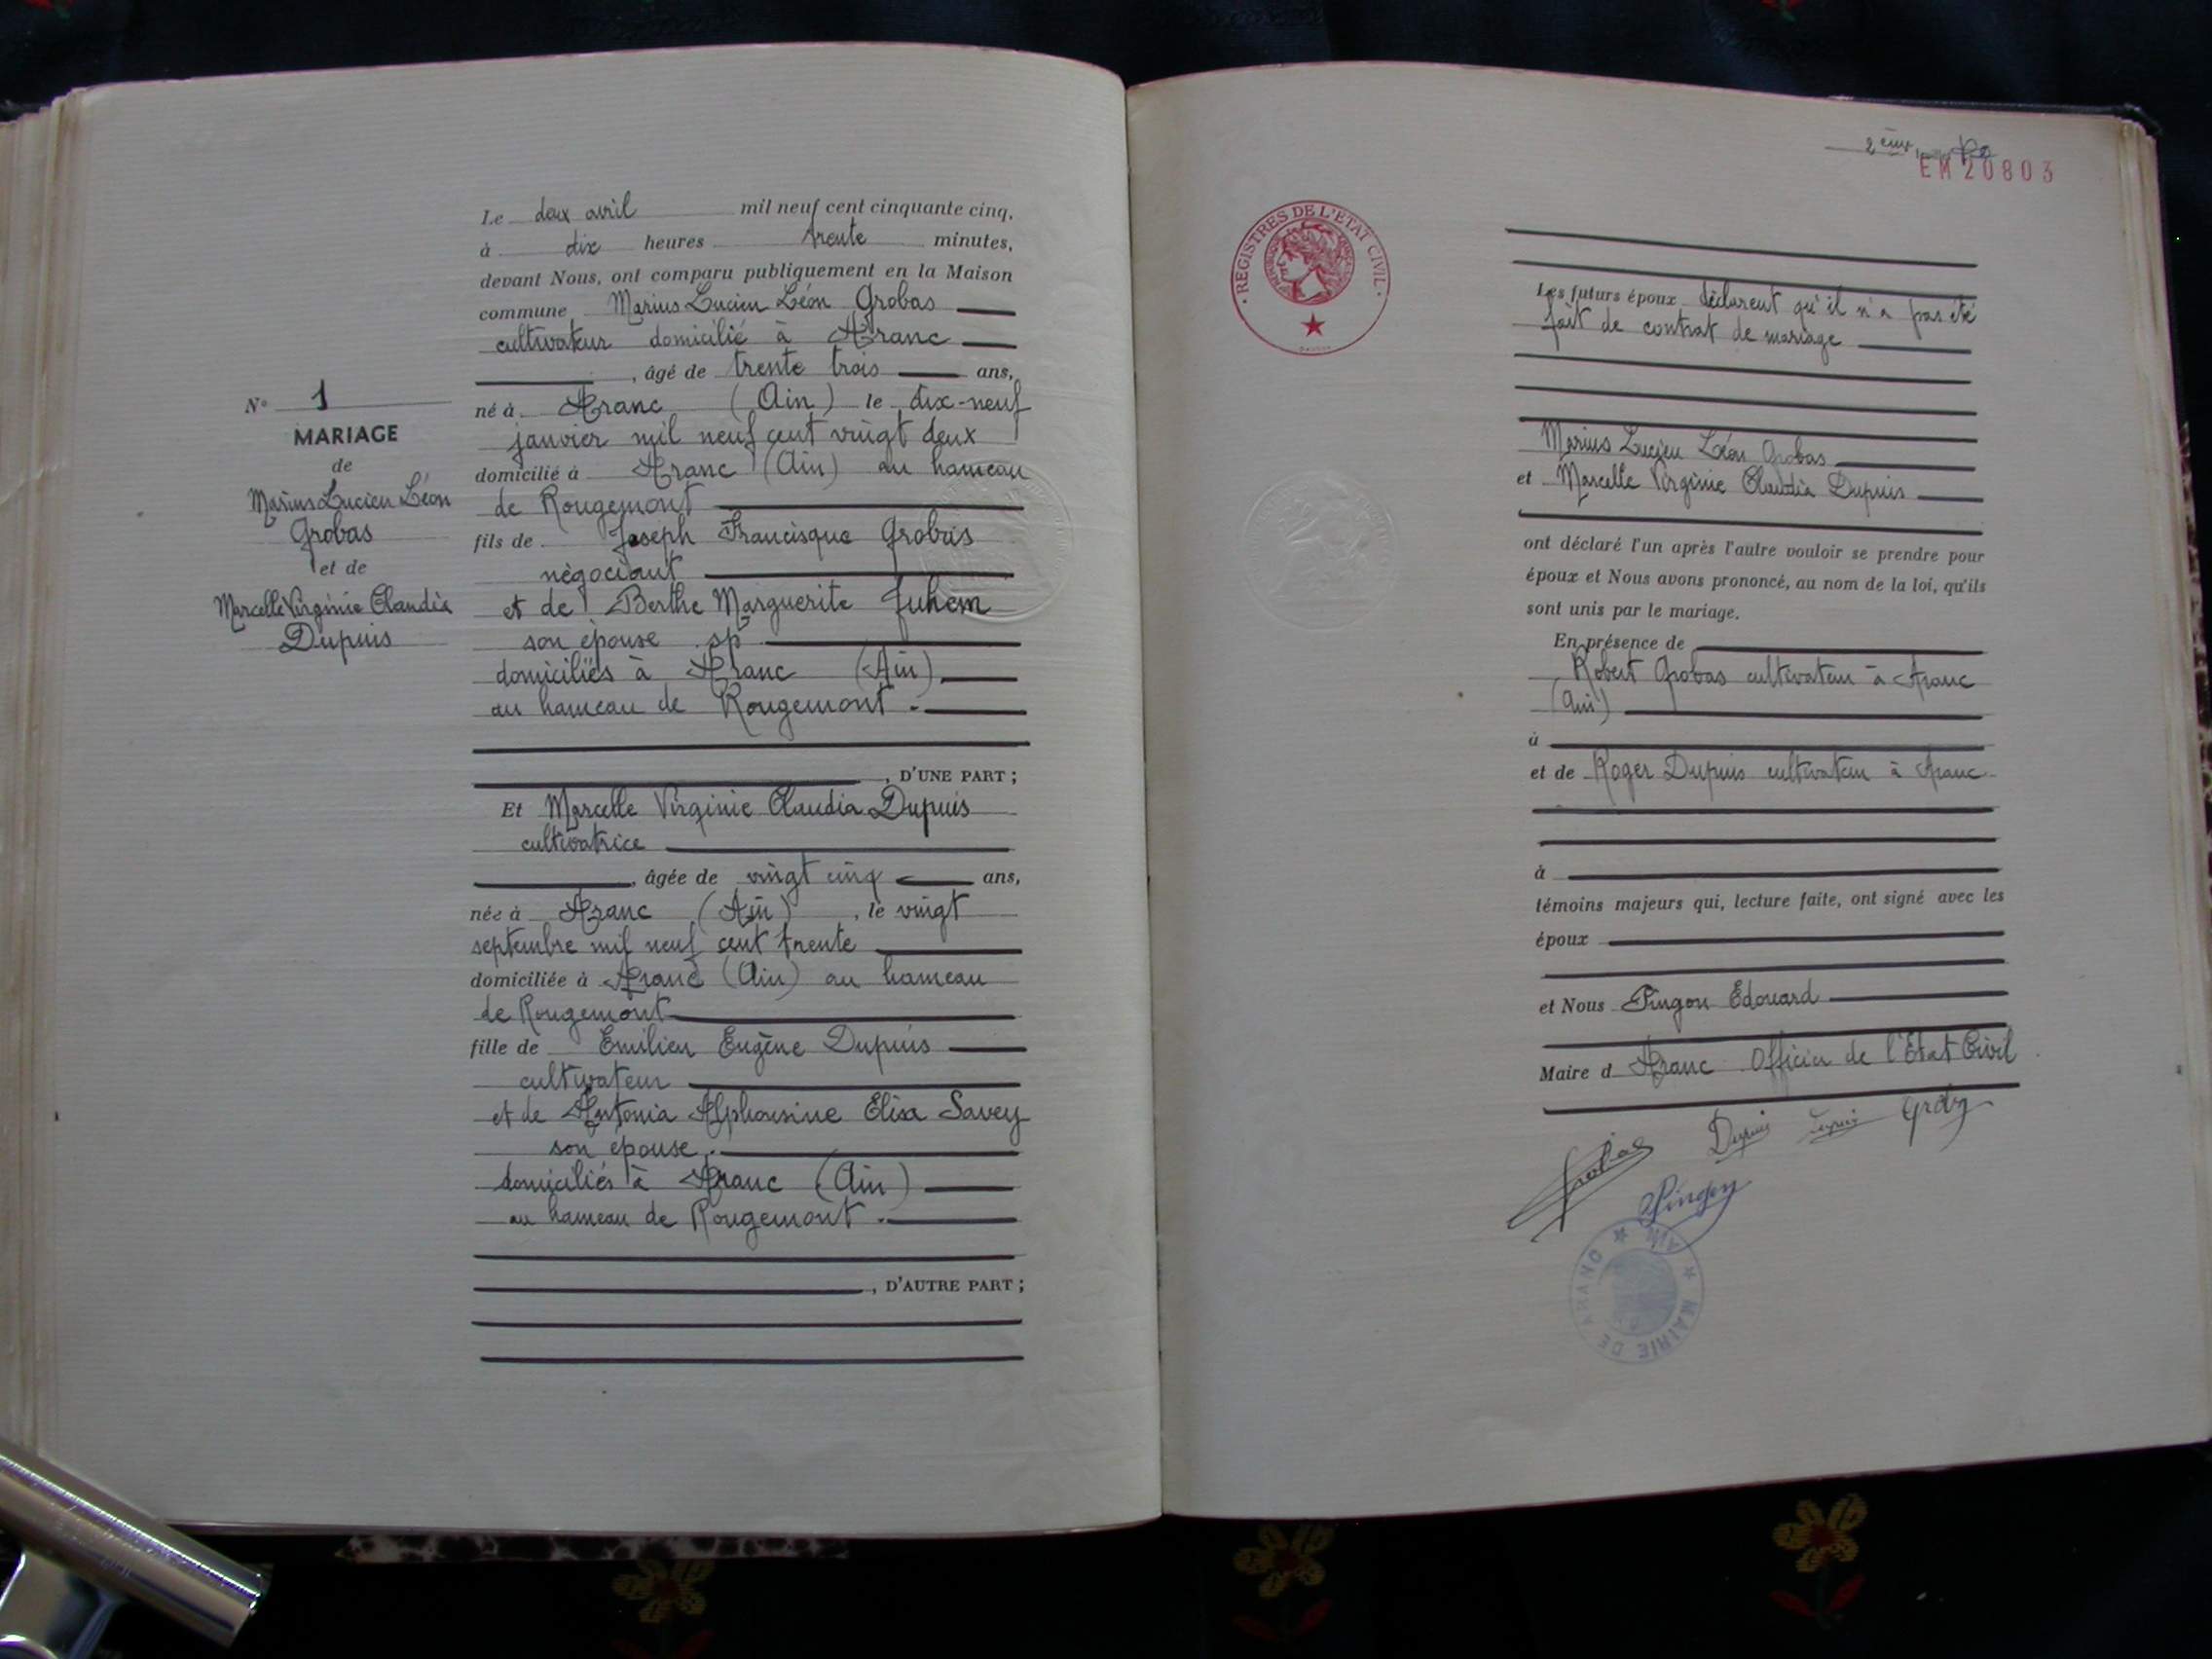 Le deux avril mil neuf cent cinquante cinq,
à dix heures trente minutes,
devant Nous, ont comparu publiquement en la Maison
commune Marius Lucien Léon Grobas
cultivateur domicilié à Aranc
, âgé de trente trois ans,
né à Aranc (Ain) le dix-neuf
janvier mil neuf cent vingt deux
domicilié à Aranc (Ain) au hameau
de Rougemont
fils de Joseph Francisque Grobas
négociant
et de Berthe Marguerite Juhem
son épouse sp
domiciliés à Aranc (Ain)
au hameau de Rougemont.
, D'UNE PART ;
Et Marcelle Virginie Claudia Dupuis
cultivatrice
, âgée de vingt cinq ans,
née à Aranc (Ain), le vingt
septembre mil neuf cent trente
domiciliée à Aranc (Ain) au hameau
de Rougemont
fille de Emilien Eugène Dupuis
cultivateur
et de Antonia Alphonsine Elisa Savey
son épouse.
domiciliés à Aranc (Ain)
au hameau de Rougemont.
, D'AUTRE PART ;
N° 1
MARIAGE
de
Marius Lucien Léon
Grobas
et de
Marcelle Virginie Claudia
Dupuis
2ème
EM 20803
REGISTRES DE L'ETAT CIVIL
Les futurs époux déclarent qu'il n'a pas été
fait de contrat de mariage
Marius Lucien Léon Grobas
et Marcelle Virginie Claudia Dupuis
ont déclaré l'un après l'autre vouloir se prendre pour
époux et Nous avons prononcé, au nom de la loi, qu'ils
sont unis par le mariage.
En présence de
Robert Grobas cultivateur à Aranc
(Ain)
à
et de Roger Dupuis cultivateur à Aranc
à
témoins majeurs qui, lecture faite, ont signé avec les
époux
et Nous Pingon Edouard
Maire d Aranc Officier de l'Etat Civil
Grobas Dupuis Dupuis
Pingon
MAIRIE DE ARANC ★ AIN ★